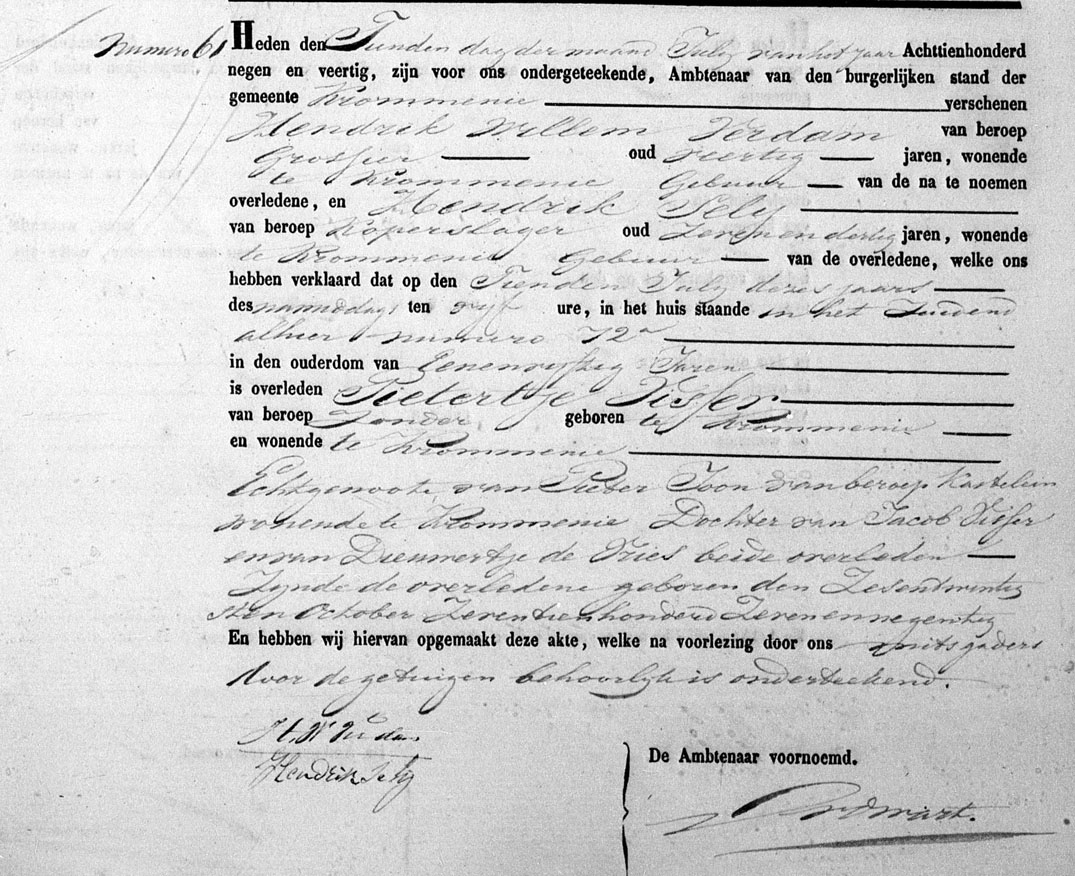 Numero 61
Heden den Tienden dag der maand July van het jaar Achttienhonderd
negen en veertig, zijn voor ons ondergeteekende, Ambtenaar van den burgerlijken stand der
gemeente Krommenie verschenen
Hendrik Willem Verdam van beroep
Grossier oud veertig jaren, wonende
te Krommenie Gebuur van de na te noemen
overledene, en Hendrik Sely
van beroep Koperslager oud Zeven en dertig jaren, wonende
te Krommenie Gebuur van de overledene, welke ons
hebben verklaard dat op den Tienden July dezes jaars
des namiddags ten vyf ure, in het huis staande in het Zuidend
alhier numero 72a
in den ouderdom van Eenenvyftig Jaren
is overleden Pietertje Visser
van beroep Zonder geboren te Krommenie
en wonende te Krommenie
Echtgenoote van Pieter Toon van beroep Kastelein
wonende te Krommenie Dochter van Jacob Visser
en van Dieuwertje de Vries beide overleden
Zynde de overledene geboren den Zesendtwintig
sten October Zeventienhonderd Zevenennegentig
En hebben wij hiervan opgemaakt deze akte, welke na voorlezing door ons mitsgaders
door de getuigen behoorlyk is onderteekend.
H. W. Verdam
Hendrik Sely
De Ambtenaar voornoemd.